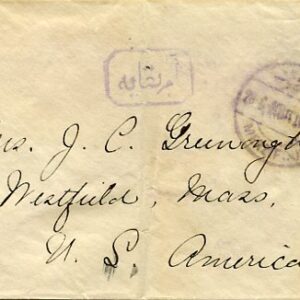 آمریقایه
rs. J. C. Greenough
Westfield, Mass.
U. S. America